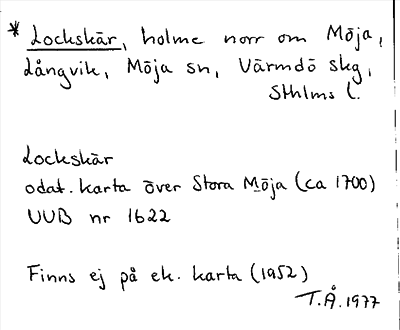 * Lockskär, holme norr om Möja,
Långvik, Möja sn, Värmdö skg,
Sthlms l.
Lockskär
odat. karta över Stora Möja (ca 1700)
UUB nr 1622
Finns ej på ek. karta (1952)
T.Å. 1977